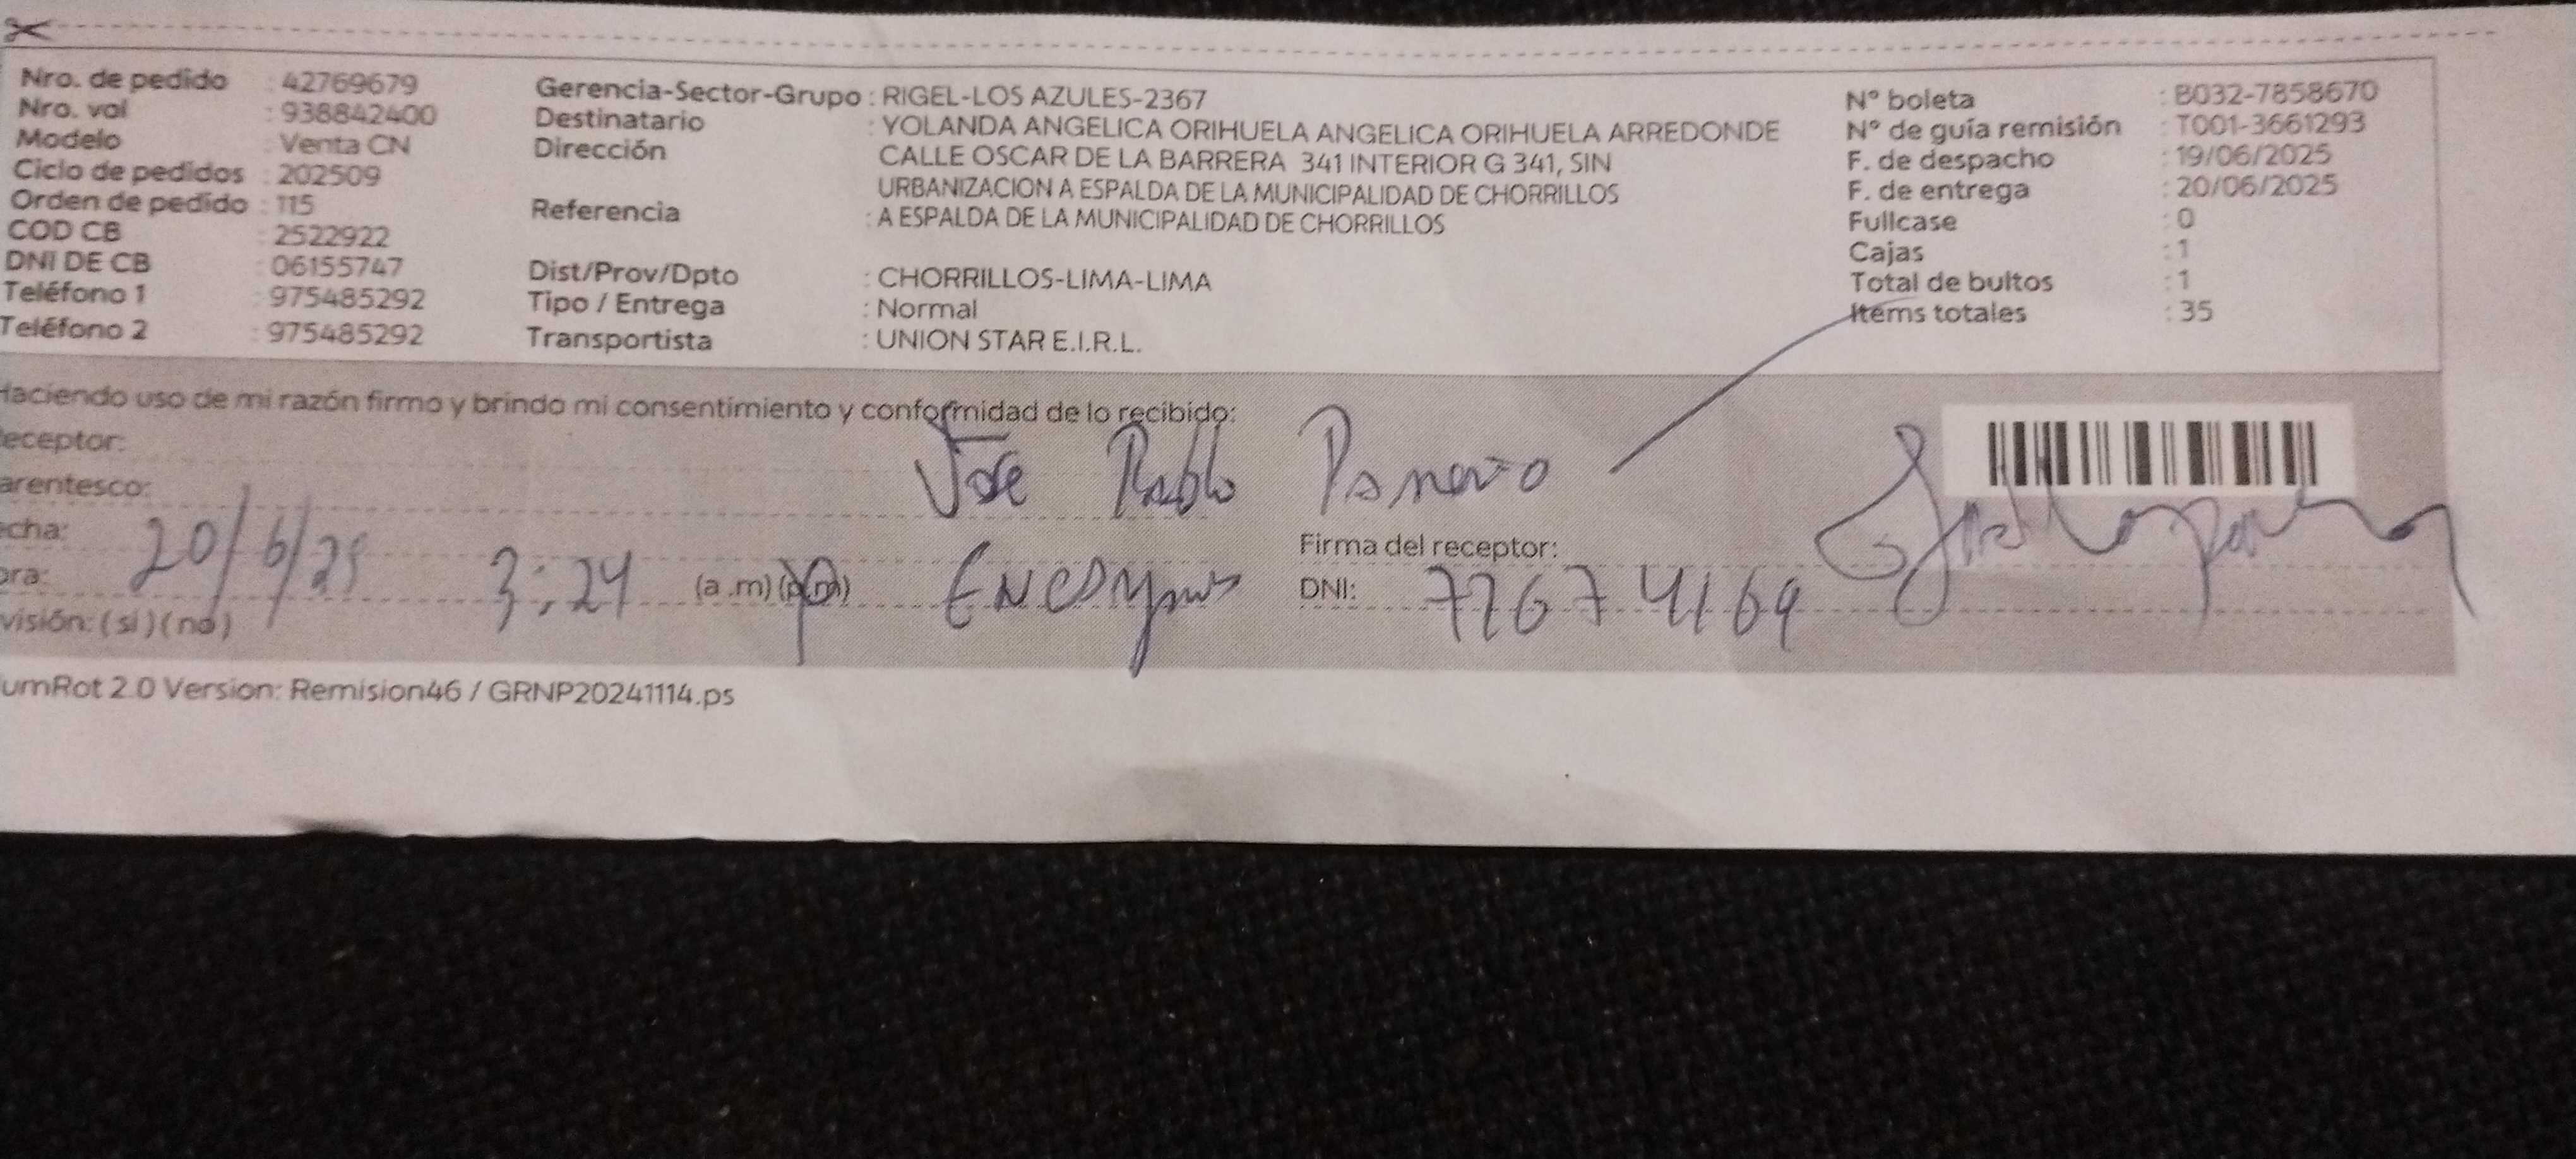 Nro. de pedido : 42769679
Nro. vol : 938842400
Modelo : Venta CN
Ciclo de pedidos : 202509
Orden de pedido : 115
COD CB : 2522922
DNI DE CB : 06155747
Teléfono 1 : 975485292
Teléfono 2 : 975485292
Gerencia-Sector-Grupo : RIGEL-LOS AZULES-2367
Destinatario : YOLANDA ANGELICA ORIHUELA ANGELICA ORIHUELA ARREDONDE
Dirección CALLE OSCAR DE LA BARRERA 341 INTERIOR G 341, SIN
URBANIZACION A ESPALDA DE LA MUNICIPALIDAD DE CHORRILLOS
Referencia : A ESPALDA DE LA MUNICIPALIDAD DE CHORRILLOS
Dist/Prov/Dpto : CHORRILLOS-LIMA-LIMA
Tipo / Entrega : Normal
Transportista : UNION STAR E.I.R.L.
N° boleta : B032-7858670
N° de guía remisión : T001-3661293
F. de despacho : 19/06/2025
F. de entrega : 20/06/2025
Fullcase : 0
Cajas : 1
Total de bultos : 1
Items totales : 35
Haciendo uso de mi razón firmo y brindo mi consentimiento y conformidad de lo recibido:
eceptor: Jose Pablo
arentesco:
echa: 20/6/25
ora: 3:24 (a.m) (p.m)
Firma del receptor:
DNI: 77674169
visión: (si) (no)
umRot 2.0 Version: Remision46 / GRNP20241114.ps